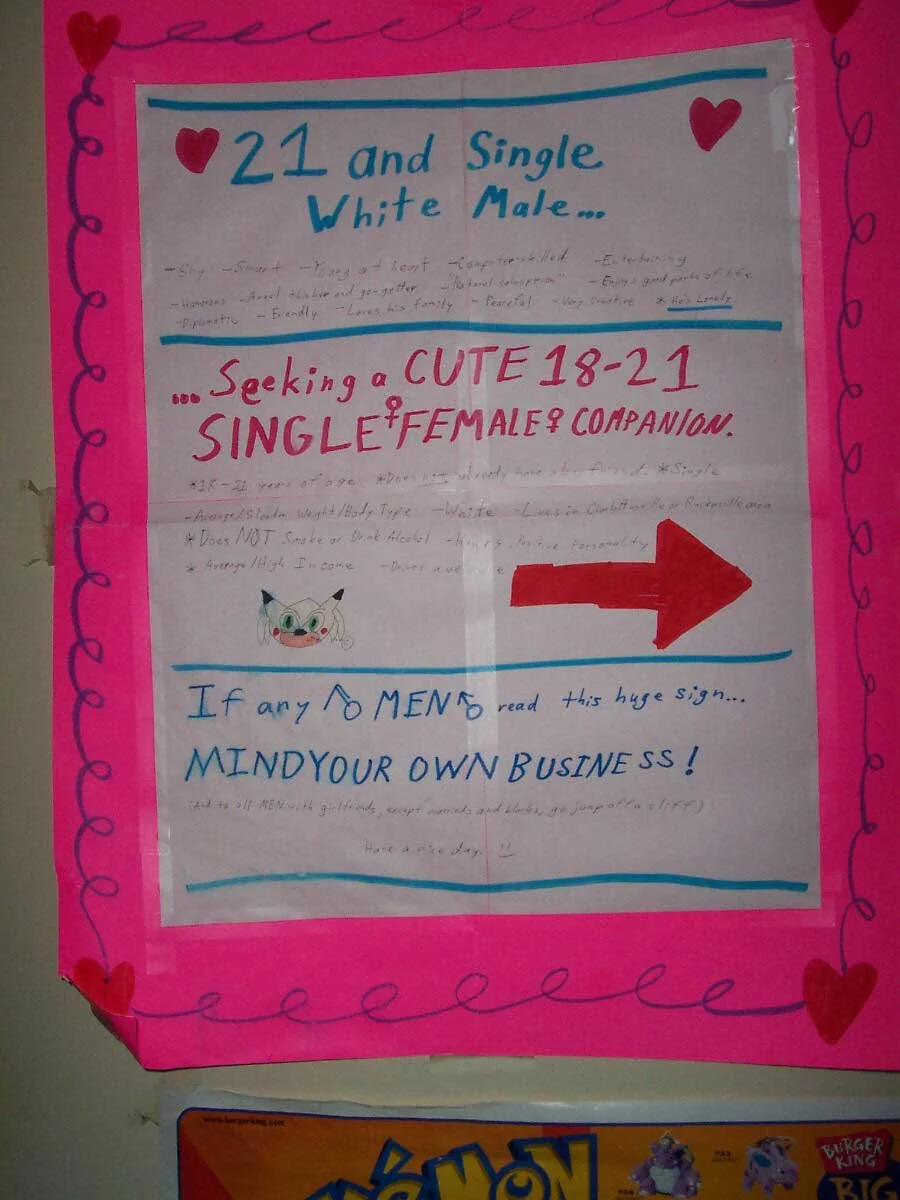 21 and Single
White Male...
-Shy -Smart -Young at heart -Computer skilled -Entertaining
-Humorous -A real thinker and go-getter -"Natural salesperson" -Enjoys good parts of life
-Diplomatic -Friendly -Loves his family -Peaceful -Very Sensitive *He's Lonely
...Seeking a CUTE 18-21
SINGLE♀FEMALE♀COMPANION.
*18-21 years of age *Does not already have a boyfriend. *Single
-Average/Slender Weight/Body Type -White -Lives in or Ruckersville area
*Does NOT Smoke or Drink Alcohol Positive Personality
*Average/High Income -Drives a
If any ♂ MEN ♂ read this huge sign...
MIND YOUR OWN BUSINESS!
(And to all MEN with girlfriends, except marrieds and blacks, go jump off a cliff)
Have a nice day.
www.burgerking.com
POKéMON
BURGER
KING
BIG